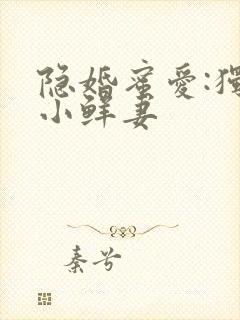 隐婚蜜爱:独
小鲜妻
秦兮